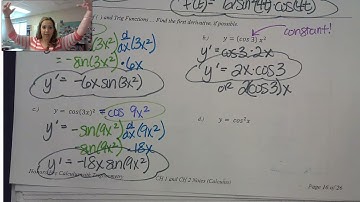 f'(t) = 16 sin(4t) cos(4t)
1 and Trig Functions ... Find the first derivative, if possible.
(3x²) d/dx(3x²)
-sin(3x²) · 6x
y' = -6x sin(3x²)
b) y = (cos 3) x² constant!
y' = cos3 · 2x
y' = 2x · cos3
or 2(cos3)x
c) y = cos(3x)² = cos 9x²
y' = -sin(9x²) d/dx(9x²)
-sin(9x²) · 18x
y' = -18x sin(9x²)
d) y = cos²x
CH 1 and CH 2 Notes (Calculus)
Page 16 of 26